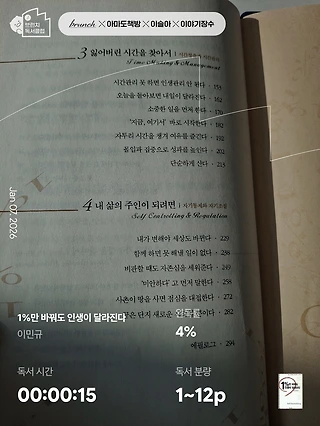 챗런지
독서클럽
brunch × 아마도책방 × 이슬아 × 이야기장수
3 잃어버린 시간을 찾아서
Time Mining & Management
시간관리 못 하면 인생관리 안 된다 • 153
오늘을 돌아보면 내일이 달라진다 • 162
소중한 일을 먼저 한다 • 176
"지금, 여기서" 바로 시작한다 • 182
자투리 시간을 챙겨 여유를 즐긴다 • 192
몰입과 집중으로 성과를 높인다 • 202
단순하게 산다 • 213
Jan 07, 2026
4 내 삶의 주인이 되려면 | 자기통제와 자기조절
Self-Controlling & Regulation
내가 변해야 세상도 바뀐다 • 229
함께 하면 못 해낼 일이 없다 • 238
비관할 때도 자존심을 세워준다 • 249
'미안하다'고 먼저 말한다 • 258
사촌이 땅을 사면 점심을 대접한다 • 272
단지 새로운 282
에필로그 • 294
1%만 바꿔도 인생이 달라진다
이민규
완독률
4%
독서 시간
00:00:15
독서 분량
1~12p